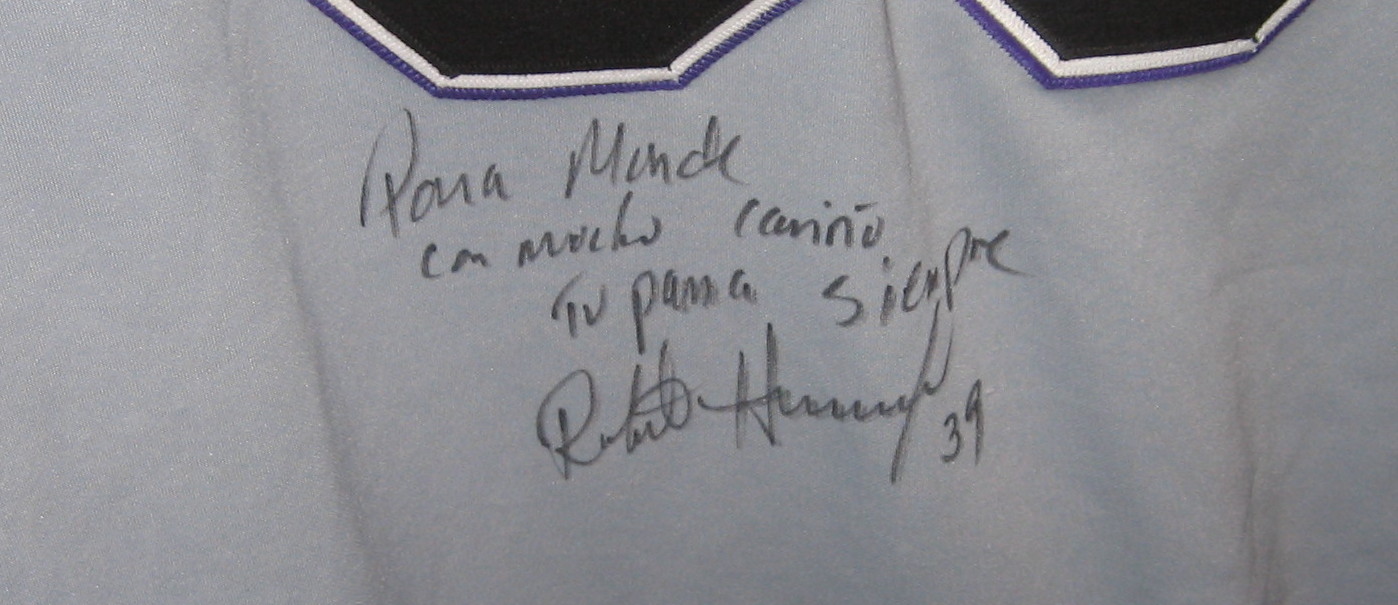 Para Mende
con mucho cariño
Tu pana siempre
Roberto Hernandez 39